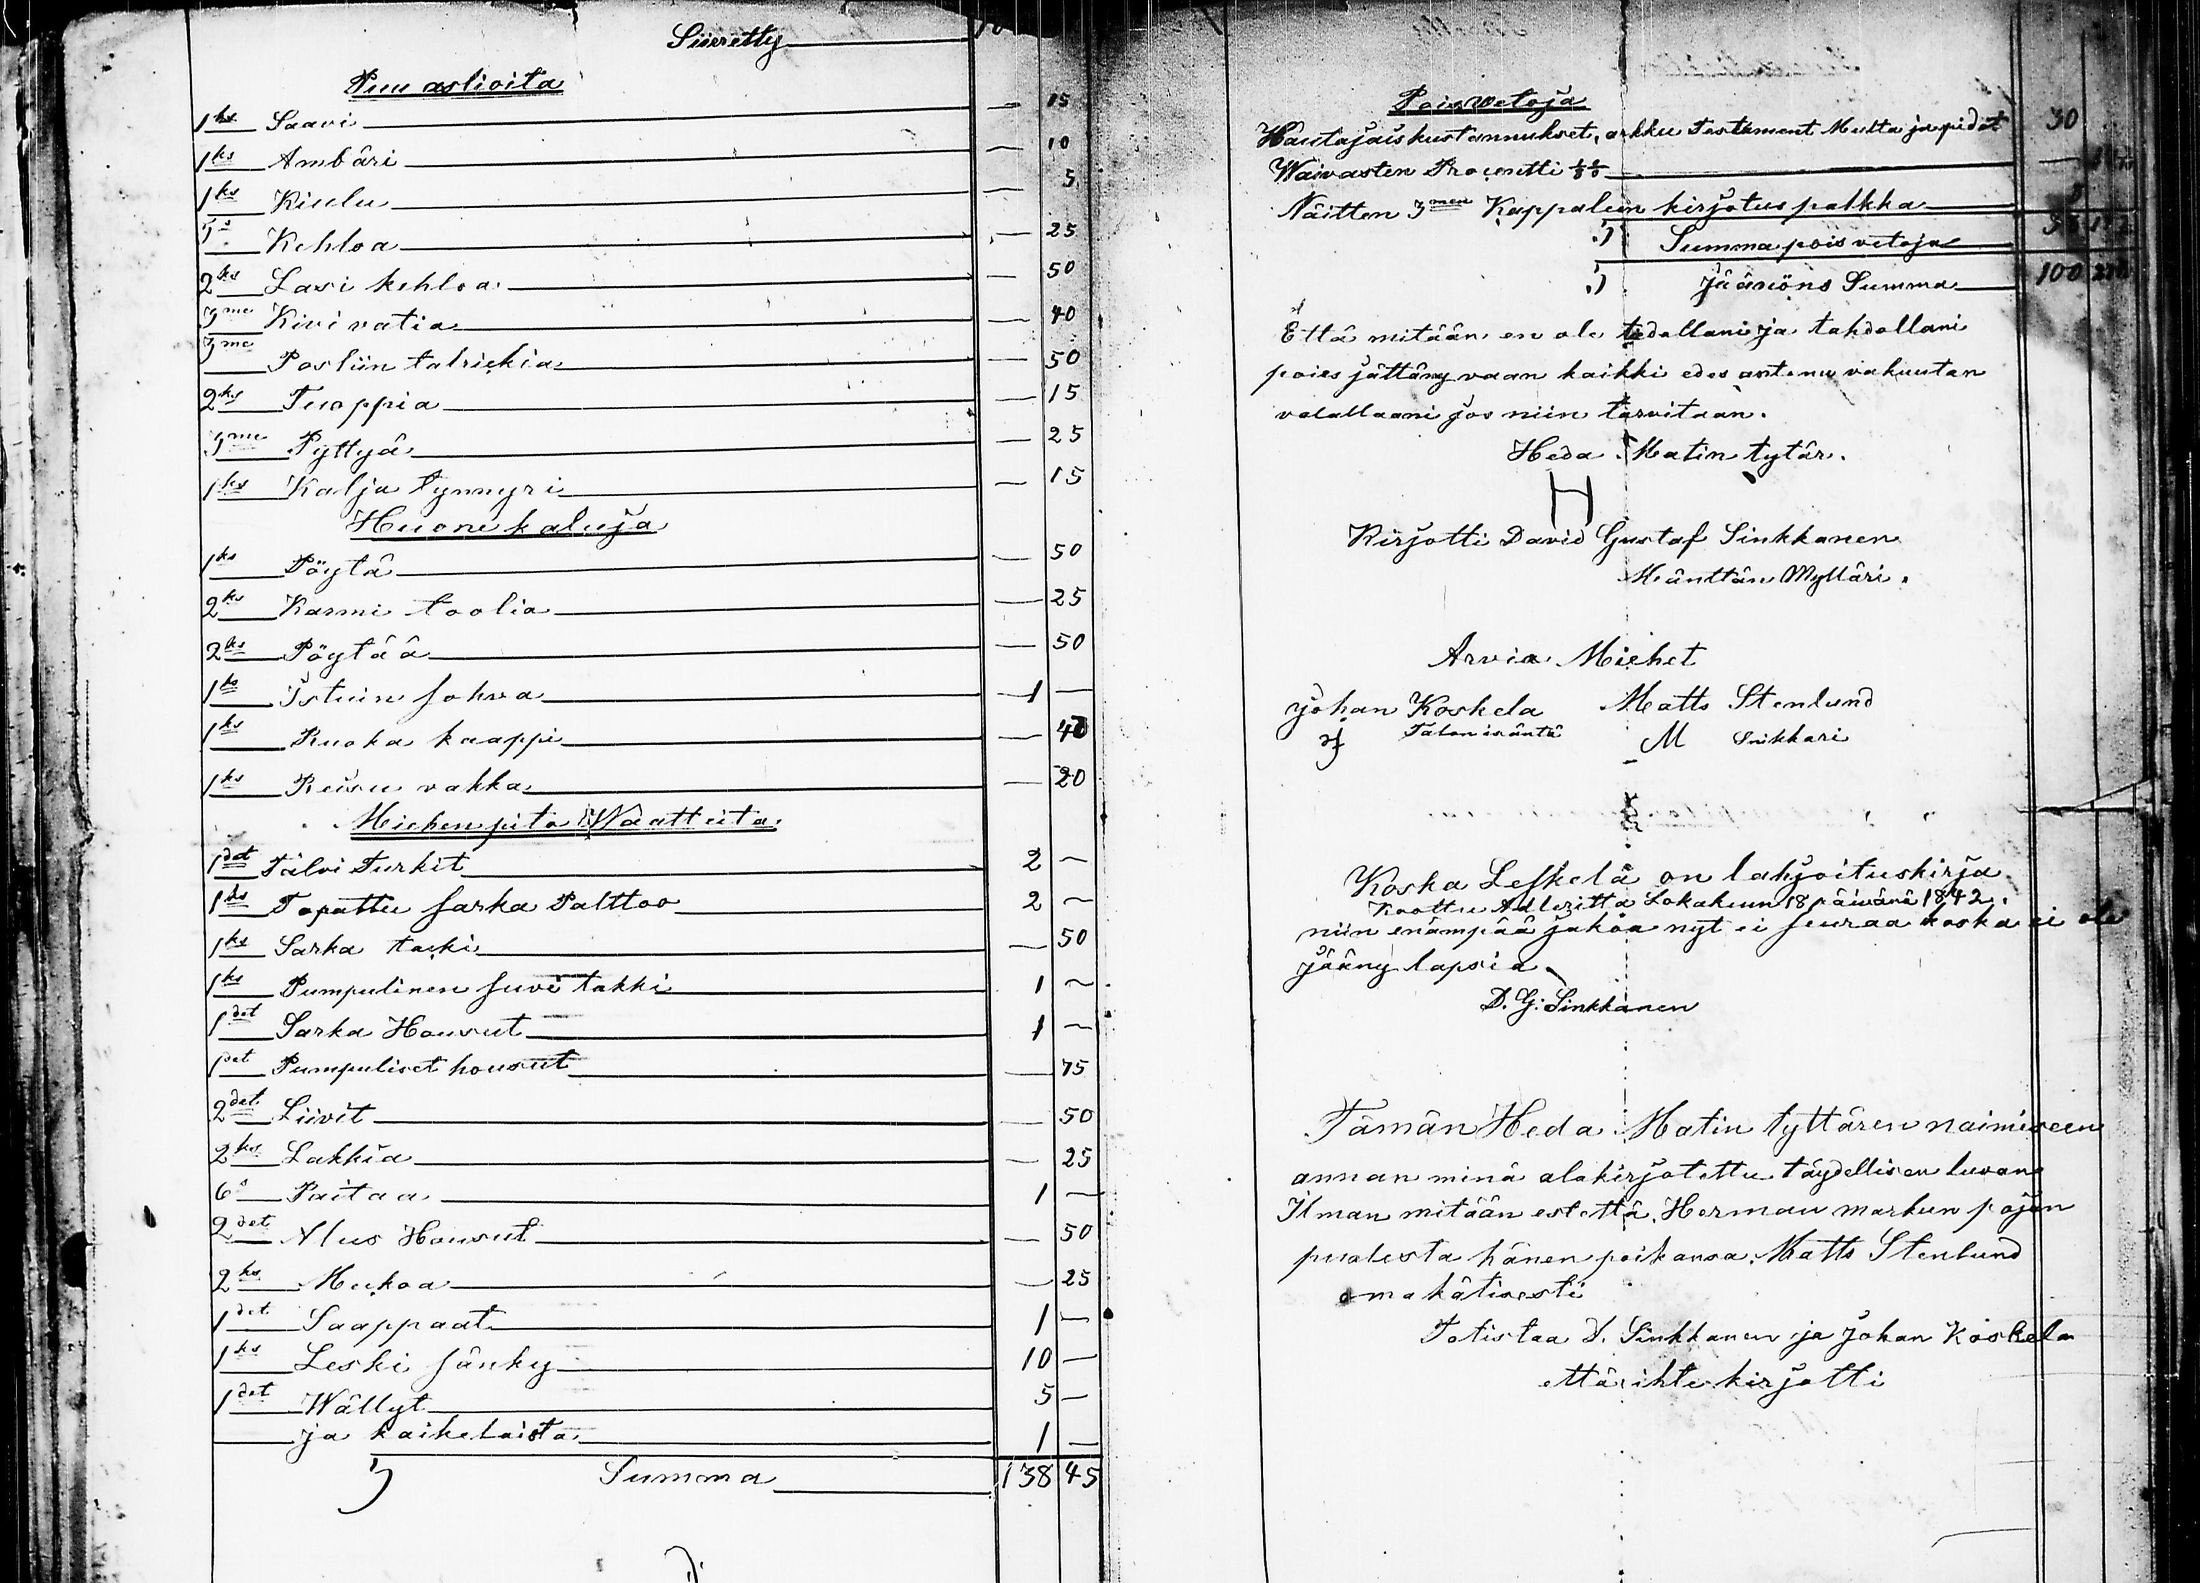 Siirretty
Puu astioita
1ks Saavi — 15
1ks Ambäri — 10
1ks Kiulu — 5
Kehloa — 25
2ks Lasi kehloa — 50
3me Kivi vatia — 40
3me Posliin talriekia — 50
2ks Tuoppia — 15
3me Pyttyä — 25
1ks Kalja tynnyri — 15
Huone kaluja
1ks Pöytä — 50
2ks Karmi toolia — 25
2ks Pöytää — 50
1ks Istuin sohva 1 —
1ks Ruoka kaappi — 40
1ks Reisu vakka — 20
Miehen pito Waatteita
1det Talvi Turkit 2 —
1ks Topattu sarka Palttoo 2 —
1ks Sarka takki — 50
1ks Pumpulinen suvi takki 1 —
1det Sarka Housut 1 —
1det Pumpuliset housut — 75
2det Liivit 50
2ks Lakkia — 25
6s Paitaa 1 —
2det Alus Housut — 50
2ks Mukoa — 25
1det Saappaat 1 —
1ks Leski sänky 10 —
1det Wällyt 5 —
ja kaikelaista 1 —
Summa 138 45
Pois vetoja
Hautajaiskustannukset, arkku Testament Multa ja pidot 30
Waivasten Procentti
Näitten 3men Kappaleen kirjotus palkka
Summa pois vetoja
Jäänöns Summa 100
Että mitään en ole tedollani ja tahdollani
poies jättäny vaan kaikki edes antanu vakuutan
valallaani jos niin tarvitaan.
Heda Matin tytär.
H
Kirjotti David Gustaf Sinkkanen
Mänttän Mylläri.
Arvia Miehet
Johan Koskela Matts Stenlund
Talon isäntä M Snikkari
Koska Leskelä on lahjoituskirja
Koottu Adlezitta Lokakuun 18 päivänä 1842.
niin enämpää jakoa nyt ei seuraa koska ei ole
jääny lapsia.
D. G. Sinkkanen
Tämän Heda Matin tyttären naimiseen
annan minä alakirjotettu täydellisen luvan
Ilman mitään estettä. Herman markun pojan
puolesta hänen poikansa. Matts Stenlund
omakätisesti
Totistaa D. Sinkkanen ja Johan Koskela
että ihte kirjotti